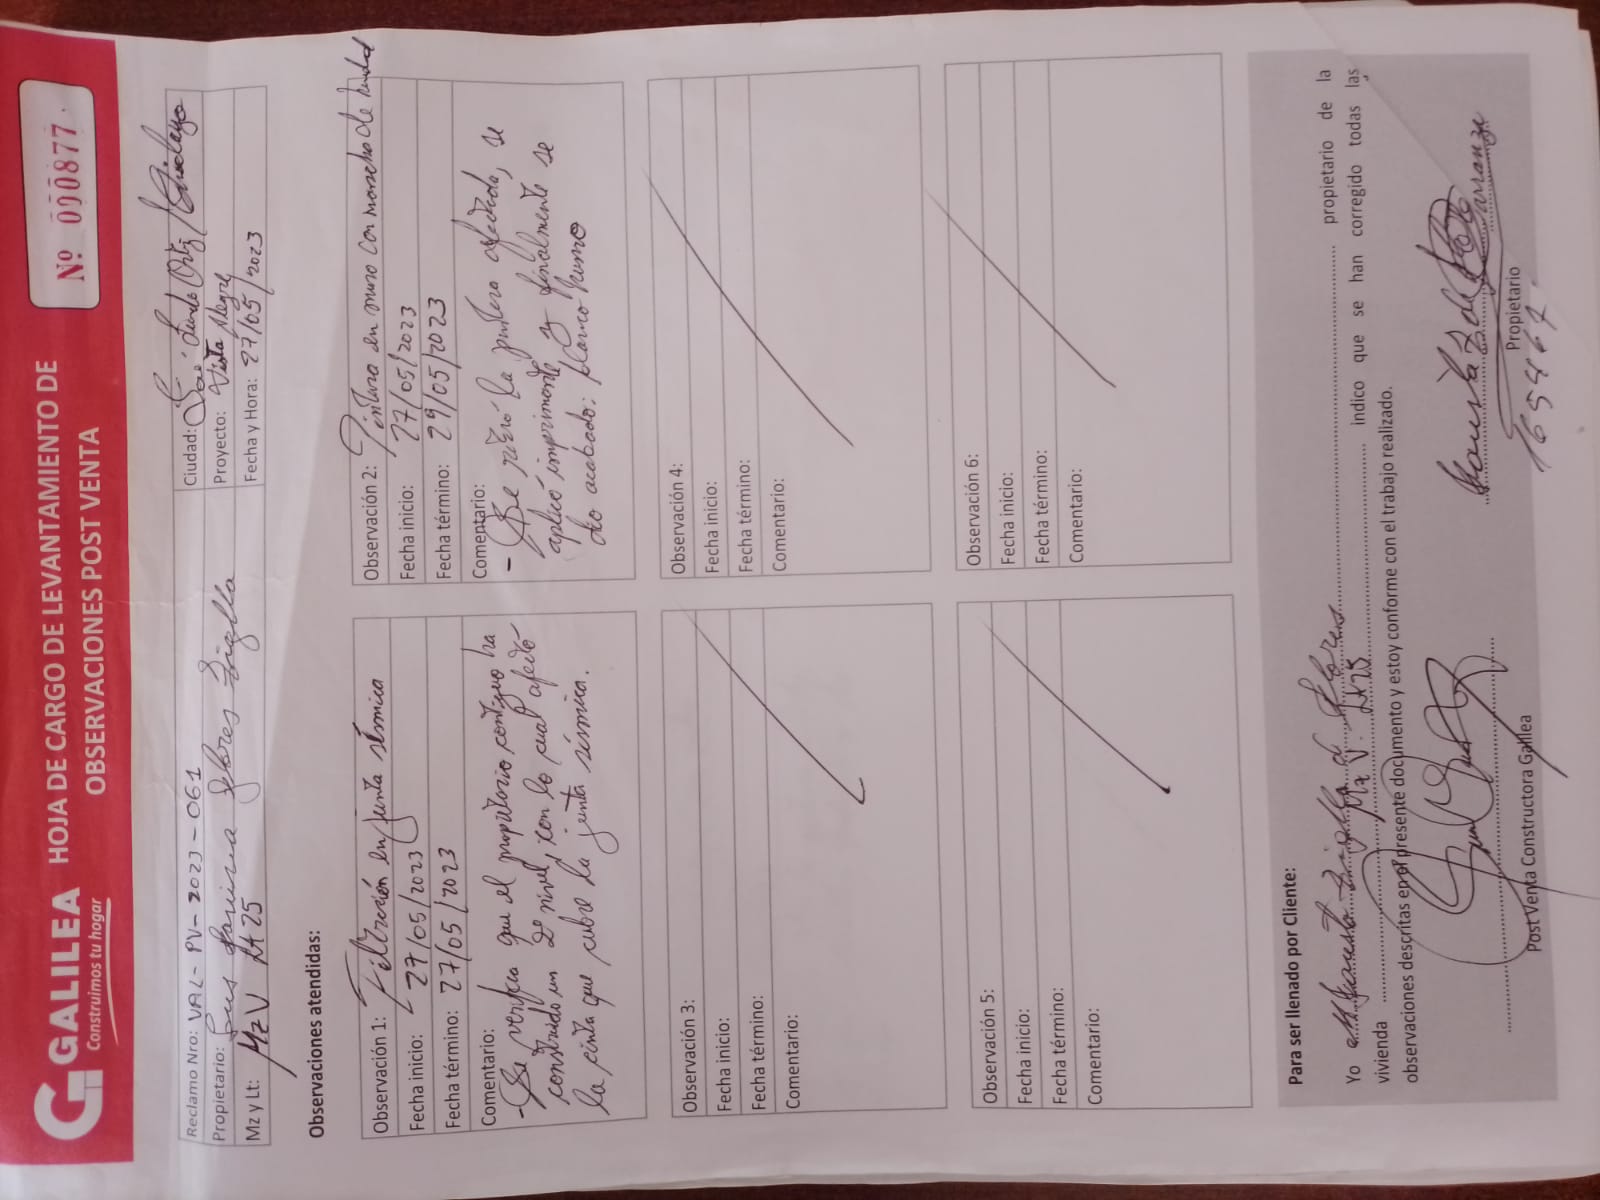 GALILEA
Construimos tu hogar
HOJA DE CARGO DE LEVANTAMIENTO DE
OBSERVACIONES POST VENTA
Nº 000877
Reclamo Nro: VAL-PV-2023-061
Propietario: Flores
Mz y Lt: Mz V Lt 25
Ciudad: José Leonardo Ortiz / Chiclayo
Proyecto: Vista Alegre
Fecha y Hora: 27/05/2023
Observaciones atendidas:
Observación 1: Filtración en junta sísmica
Fecha inicio: 27/05/2023
Fecha término: 27/05/2023
Comentario:
- Se verifica que el propietario contiguo ha
construido un 2º nivel, con lo cual afectó
la cinta que cubre la junta sísmica.
Observación 2: Pintura en muro con mancha de humedad
Fecha inicio: 27/05/2023
Fecha término: 29/05/2023
Comentario:
- Se retiró la pintura afectada, se
aplicó imprimante y finalmente se
dio acabado: blanco humo
Observación 3:
Fecha inicio:
Fecha término:
Comentario:
Observación 4:
Fecha inicio:
Fecha término:
Comentario:
Observación 5:
Fecha inicio:
Fecha término:
Comentario:
Observación 6:
Fecha inicio:
Fecha término:
Comentario:
Para ser llenado por Cliente:
Yo de Flores propietario de la
vivienda Mz V. Lt 25 indico que se han corregido todas las
observaciones descritas en el presente documento y estoy conforme con el trabajo realizado.
Post Venta Constructora Galilea
Propietario